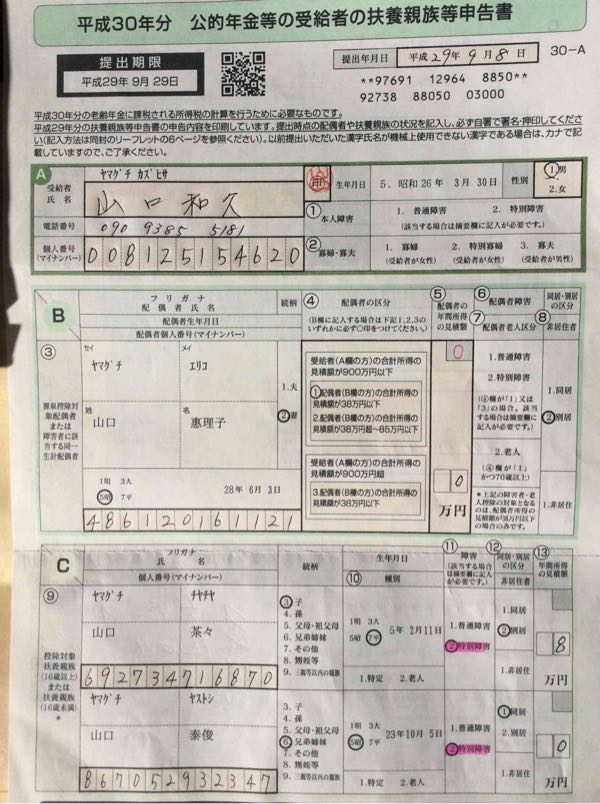 平成30年分 公的年金等の受給者の扶養親族等申告書
提出期限
平成29年 9月29日
提出年月日 平成 29年 9月 8日
30-A
**97691 12964 8850**
92738 88050 03000
平成30年分の老齢年金に課税される所得税の計算を行うために必要なものです。
平成29年分の扶養親族等申告書の申告内容を印刷しています。提出時点の配偶者や扶養親族の状況を記入し、必ず自署で署名・押印してください(記入方法は同封のリーフレットの6ページを参照ください。)。以前提出いただいた漢字氏名が機械上使用できない漢字である場合は、カナで記載していますので、ご了承ください。
A
受給者氏名
ヤマグチ カズヒサ
山口 和久
印
生年月日 5.昭和 26年 3月 30日
性別 1.男 2.女
電話番号 090 9385 5181
個人番号(マイナンバー) 008125154620
①本人障害 1. 普通障害 2. 特別障害
(該当する場合は摘要欄に記入が必要です。)
②寡婦・寡夫 1. 寡婦 2. 特別寡婦 3. 寡夫
(受給者が女性) (受給者が女性) (受給者が男性)
B
フリガナ
配偶者氏名
配偶者生年月日
配偶者個人番号(マイナンバー)
続柄
④ 配偶者の区分
(B欄に記入する場合は下記1,2,3のいずれかに必ず○印をつけてください。)
⑤ 配偶者の年間所得の見積額
⑥ 配偶者障害
⑦ 配偶者老人区分
同居・別居の区分
⑧ 非居住者
③
源泉控除対象配偶者または障害者に該当する同一生計配偶者
セイ メイ
ヤマグチ エリコ
姓 名
山口 惠理子
1明 3大
5昭 7平
28年 6月 3日
486120161121
1.夫
2.妻
受給者(A欄の方)の合計所得の見積額が900万円以下
1.配偶者(B欄の方)の合計所得の見積額が38万円以下
2.配偶者(B欄の方)の合計所得の見積額が38万円超～85万円以下
受給者(A欄の方)の合計所得の見積額が900万円超
3.配偶者(B欄の方)の合計所得の見積額が38万円以下
0
0
万円
1.普通障害
2.特別障害
(④欄が「1」又は「3」の場合。該当する場合は摘要欄に記入が必要です。)
2.老人
(④欄が「1」かつ70歳以上)
*上記の障害者・老人控除の対象となるのは、配偶者の所得の見積額が38万円以下の場合のみです。
1.同居
2.別居
1.非居住
C
フリガナ
氏名
個人番号(マイナンバー)
続柄
生年月日
⑩ 種別
⑪ 障害
(該当する場合は摘要欄に記入が必要です。)
⑫ 同居・別居の区分
非居住者
⑬ 年間所得の見積額
⑨
控除対象扶養親族(16歳以上)または扶養親族(16歳未満)
*
ヤマグチ チヤチヤ
山口 茶々
692734716870
3. 子
4. 孫
5. 父母・祖父母
6. 兄弟姉妹
7. その他
8. 甥姪等
9. 三親等以内の親族
1明 3大
5昭 7平
5年 2月11日
1.特定 2.老人
1.普通障害
2.特別障害
1.同居
2.別居
1.非居住
8
万円
ヤマグチ ヤストシ
山口 泰俊
867052932347
3. 子
4. 孫
5. 父母・祖父母
6. 兄弟姉妹
7. その他
8. 甥姪等
9. 三親等以内の親族
1明 3大
5昭 7平
23年10月 5日
1.特定 2.老人
1.普通障害
2.特別障害
1.同居
2.別居
1.非居住
0
万円